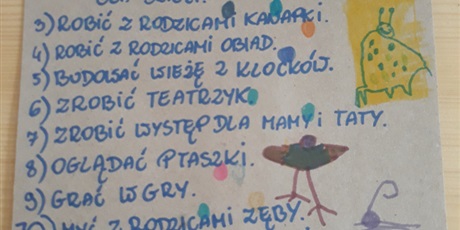 3) ROBIĆ Z RODZICAMI KANAPKI.
4) ROBIĆ Z RODZICAMI OBIAD.
5) BUDOWAĆ WIEŻĘ Z KLOCKÓW.
6) ZROBIĆ TEATRZYK.
7) ZROBIĆ WYSTĘP DLA MAMY i TATY.
8) OGLĄDAĆ PTASZKI.
9) GRAĆ W GRY.
10) MYĆ Z RODZICAMI ZĘBY.